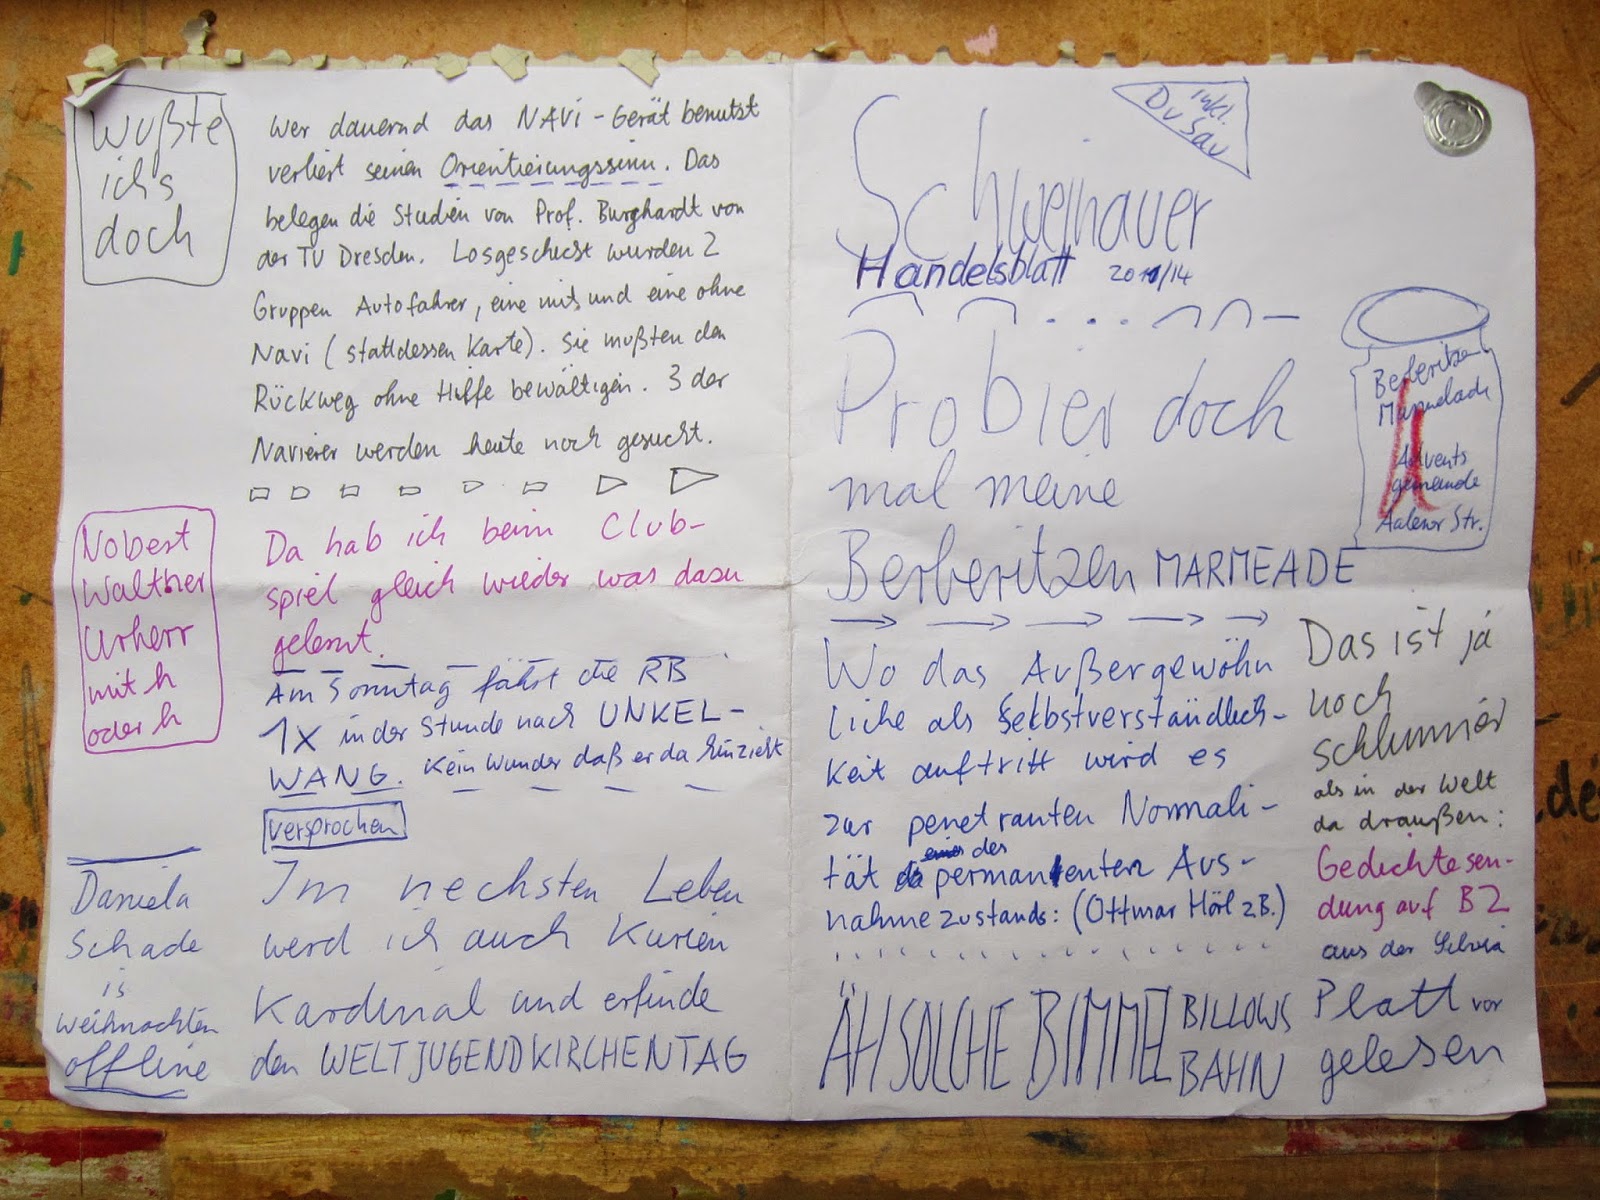 Wußte
ichs
doch
Wer dauernd das NAVi-Gerät benutzt
verliert seinen Orientierungssinn. Das
belegen die Studien von Prof. Burghardt von
der TU Dresden. Losgeschickt wurden 2
Gruppen Autofahrer, eine mit und eine ohne
Navi (stattdessen Karte). Sie mußten den
Rückweg ohne Hilfe bewältigen. 3 der
Navierer werden heute noch gesucht.
Nobest
Walther
Urherr
mit h
oder h
Da hab ich beim Club-
spiel gleich wieder was dazu
gelernt.
Am Sonntag fährt die RB
1X in der Stunde nach UNKEL-
WANG. Kein Wunder daß er da hinzieht
versprochen
Daniela
Schade
is
weihnachten
offline
Im nechsten Leben
werd ich auch Kurien
Kardinal und erfinde
den WELTJUGENDKIRCHENTAG
inkl.
Du Sau
Schweinauer
Handelsblatt 2011/14
Probier doch
mal meine
Berberitzen MARMEADE
Berberitzen
Marmelade
Advents
gemeinde
Aalener Str.
Wo das Außergewöhn
liche als Selbstverständlich-
keit auftritt wird es
zur penetranten Normali-
tät des permanenten Aus-
nahmezustands: (Ottmar Hörl z.B.)
ÄH SOLCHE BIMMEL BILLOWS
BAHN
Das ist ja
noch
schlimmer
als in der Welt
da draußen:
Gedichtesen-
dung auf B2
aus der
Platt vor
gelesen